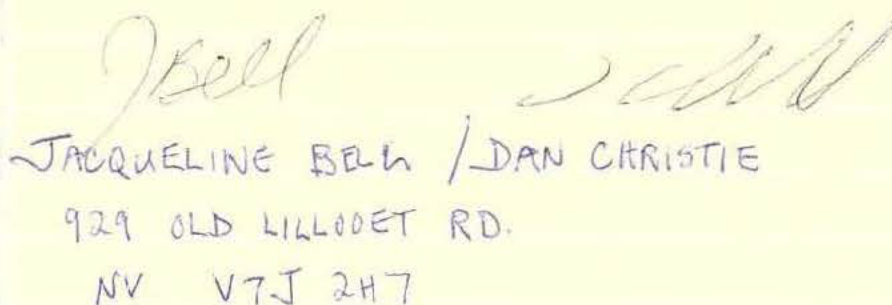 JBell
JACQUELINE BELL / DAN CHRISTIE
929 OLD LILLOOET RD.
NV V7J 2H7